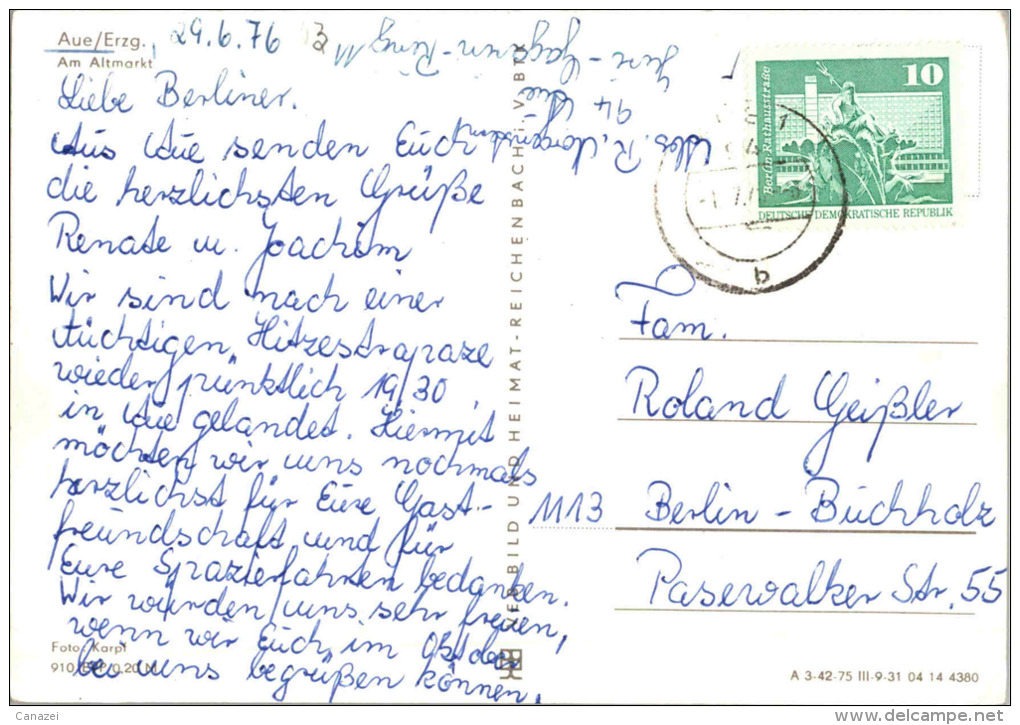 Aue/Erzg.
Am Altmarkt
29.6.76
Liebe Berliner.
Aus Aue senden Euch
die herzlichsten Grüße
Renate u. Joachim
Wir sind nach einer
tüchtigen Hitzestrapaze
wieder pünktlich 19/30
in Aue gelandet. Hiermit
möchten wir uns nochmals
herzlichst für Eure Gast-
freundschaft und für
Eure Spazierfahrten bedanken.
Wir würden uns sehr freuen,
wenn wir Euch im Oktober
bei uns begrüßen können.
Foto: Karpf
910 0,20 M
Abs. R.
94 Aue
Juri-Gagarin-Ring 11
VEB BILD UND HEIMAT · REICHENBACH i. V. BTX
10
Berlin, Rathausstraße
DEUTSCHE DEMOKRATISCHE REPUBLIK
b
Fam.
Roland Geißler
1113 Berlin-Buchholz
Pasewalker Str. 55
A 3-42-75 III-9-31 04 14 4380
Canazei
www.delcampe.net